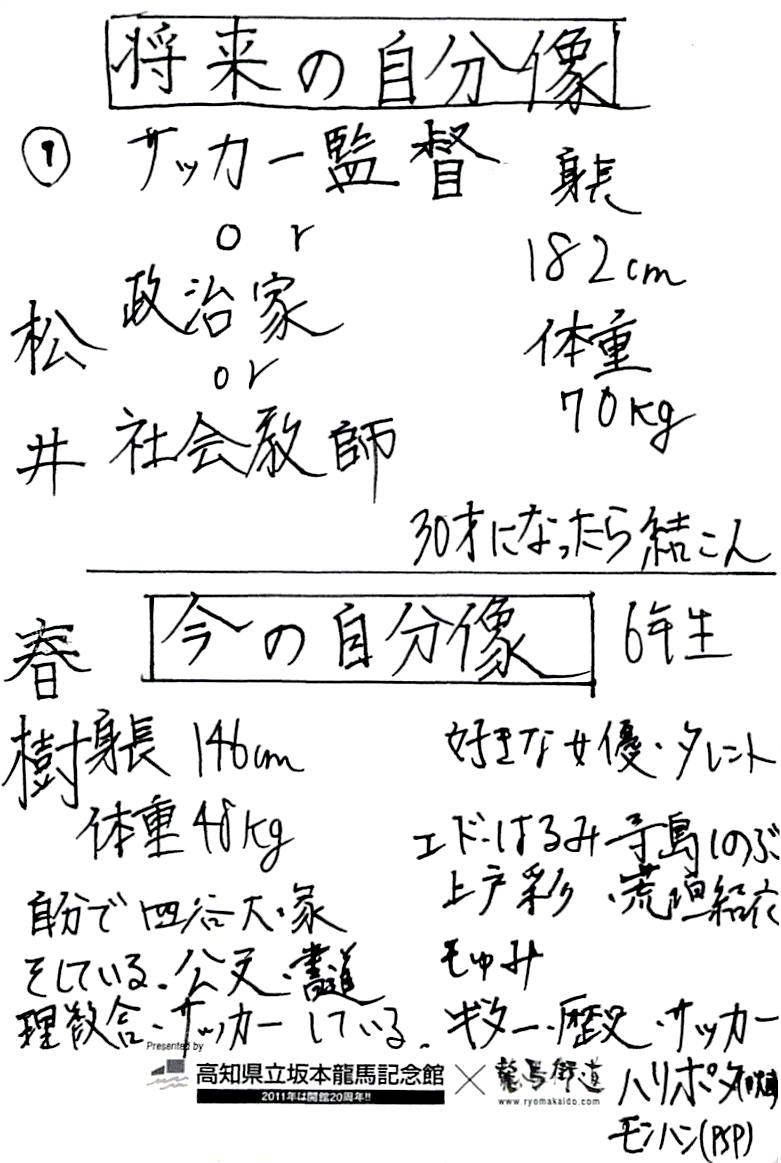 将来の自分像
⑨ サッカー監督
or
政治家
or
社会教師
身長
182cm
体重
70kg
30才になったら結こん
松井春樹
今の自分像 6年生
身長 146cm
体重 48kg
自分で四谷大塚
をしている。公文・書道
理数合・サッカーしている。
好きな女優・タレント
エド・はるみ 寺島しのぶ
上戸彩・荒垣結衣
もゅみ
ギター・歴史・サッカー
ハリポタ
モンハン(PSP)
Presented by
高知県立坂本龍馬記念館 × 龍馬街道
2011年は開館20周年!!
www.ryomakaido.com